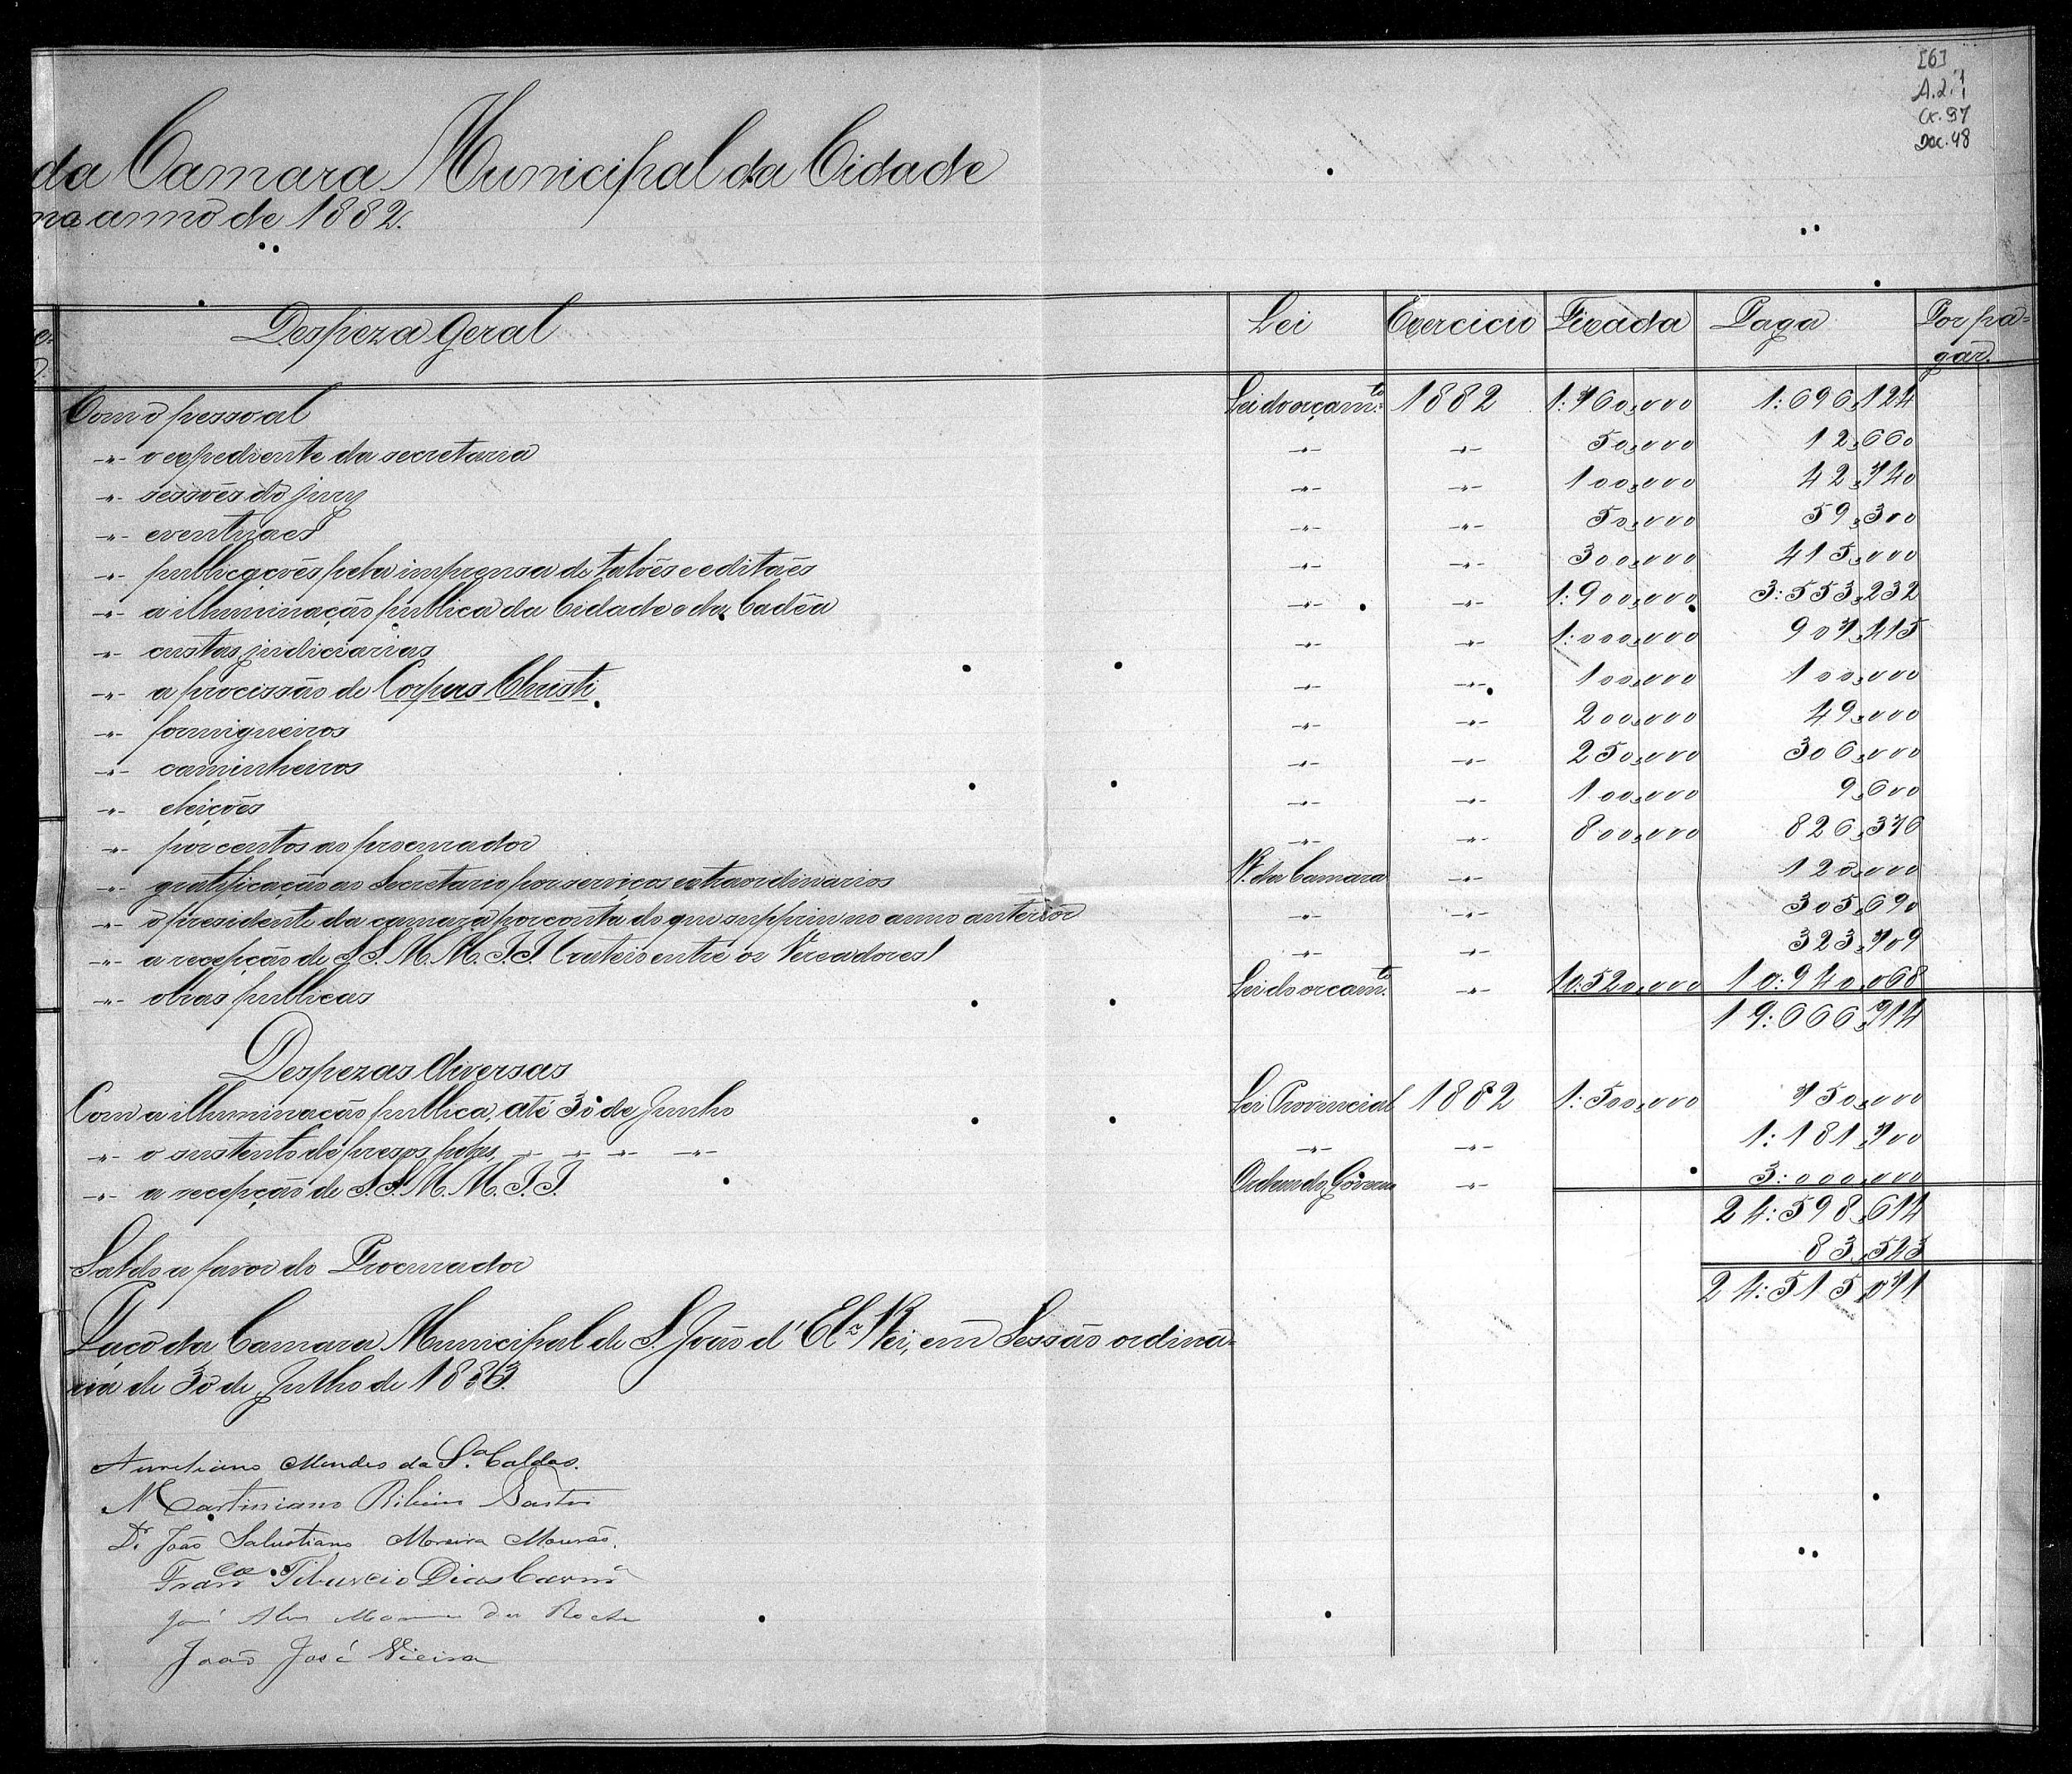 [6]
A.2.1
Cx. 97
Doc. 48
da Camara Municipal da Cidade
no anno de 1882.
Despeza geral Lei Exercicio Fixada Paga Por pa=
gar.
Com o pessoal Lei do orçamto. 1882 1:760,000 1:696,124
-"- o expediente da secretaria -"- -"- 50,000 12,660
-"- sessões do jury -"- -"- 100,000 42,740
-"- eventuaes -"- -"- 50,000 59,300
-"- publicações pela imprensa de talões e editaes -"- -"- 300,000 415,000
-"- a illuminação publica da Cidade e da Cadêa -"- -"- 1:900,000 3:553,232
-"- custas judiciarias -"- -"- 1:000,000 907,415
-"- a procissão de Corpus Christi -"- -"- 100,000 100,000
-"- formigueiros -"- -"- 200,000 49,000
-"- caminheiros -"- -"- 250,000 306,000
-"- eleições -"- -"- 100,000 9,600
-"- por centos ao procurador -"- -"- 800,000 826,376
-"- gratificação ao Secretario por serviços extraordinarios R. da Camara -"- 120,000
-"- o presidente da camara por conta do que suppriu no anno anterior -"- -"- 305,690
-"- a recepção de S.S.M.M.I.I. (rateio entre os Vereadores) -"- -"- 323,709
-"- obras publicas Lei do orcamto. -"- 10:520,000 10:940,068
19:666,914
Despezas diversas
Com a illuminação publica, até 30 de Junho Lei Provincial 1882 1:500,000 750,000
-"- o sustento de presos pobres, -"- -"- -"- -"- -"- -"- 1:181,700
-"- a recepção de S.S.M.M.I.I. Ordem do Governo -"- 3:000,000
24:598,614
Saldo a favor do Procurador 83,543
24:515,071
Paço da Camara Municipal de S. João d'El-Rei, em Sessão ordina=
ria de 30 de Julho de 1883.
Aureliano Mendes da Sa. Caldas.
Martiniano Ribeiro Bastos
Dr. João Salustiano Moreira Mourão.
Franco Tiburcio Dias
José Alves da Rocha
João José Vieira